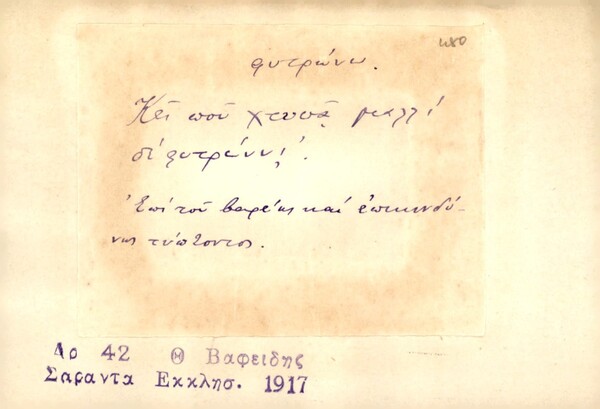 480
φυτρώνω.
Κεῖ ποῦ χτυπᾷ μαλλὶ
δὲ φυτρώνν!.
Ἐπὶ τοῦ βαρέως καὶ ἐπικινδύ-
νως τύπτοντος.
Αρ 42 Θ Βαφειδης
Σαραντα Εκκλησ. 1917